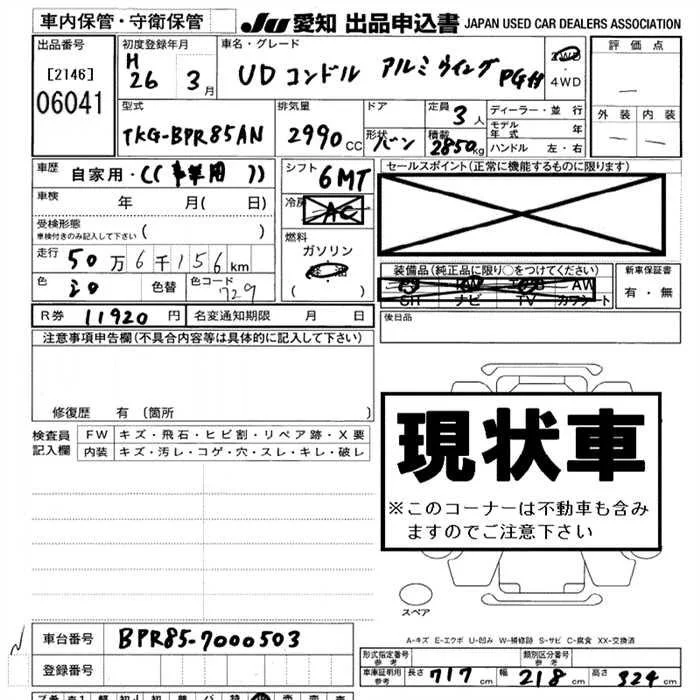 車内保管・守衛保管
JU 愛知 出品申込書 JAPAN USED CAR DEALERS ASSOCIATION
出品番号
[2146]
06041
初度登録年月
H 26 3月
車名・グレード
UDコンドル アルミウイング PG付
4WD
評価点
—
外装 内装
— —
型式
TKG-BPR85AN
排気量
2990cc
ドア
形状 バン
定員 3人
積載 2850kg
ディーラー・並行
モデル年式 年
ハンドル 左・右
車歴
自家用・(( 事業用 ))
車検 年 月( 日)
受検形態
車検付きのみ記入して下さい ( )
走行 50万6千156km
色 シロ 色替 色コード 729
シフト 6MT
冷房 AC
燃料
ガソリン
( )
セールスポイント(正常に機能するものに限ります)
装備品(純品正に限り○をつけてください)
SR PW エアB AW
ナビ TV カワシート
新車保証書
有・無
R券 11920円 名変通知期限 月 日
後日品
注意事項申告欄(不具合内容等は具体的に記入して下さい)
修復歴 有(箇所 )
検査員記入欄
FW キズ・飛石・ヒビ割・リペア跡・X要
内装 キズ・汚レ・コゲ・穴・スレ・キレ・破レ
現状車
※このコーナーは不動車も含み
ますのでご注意下さい
スペア
A-キズ E-エクボ U-凹み W-補修跡 S-サビ C-腐食 XX-交換済
車台番号 BPR85-7000503
登録番号
形式指定番号 参考
類別区分番号 参考
車庫証明用 参考 長さ 717cm 幅 218cm 高さ 324cm